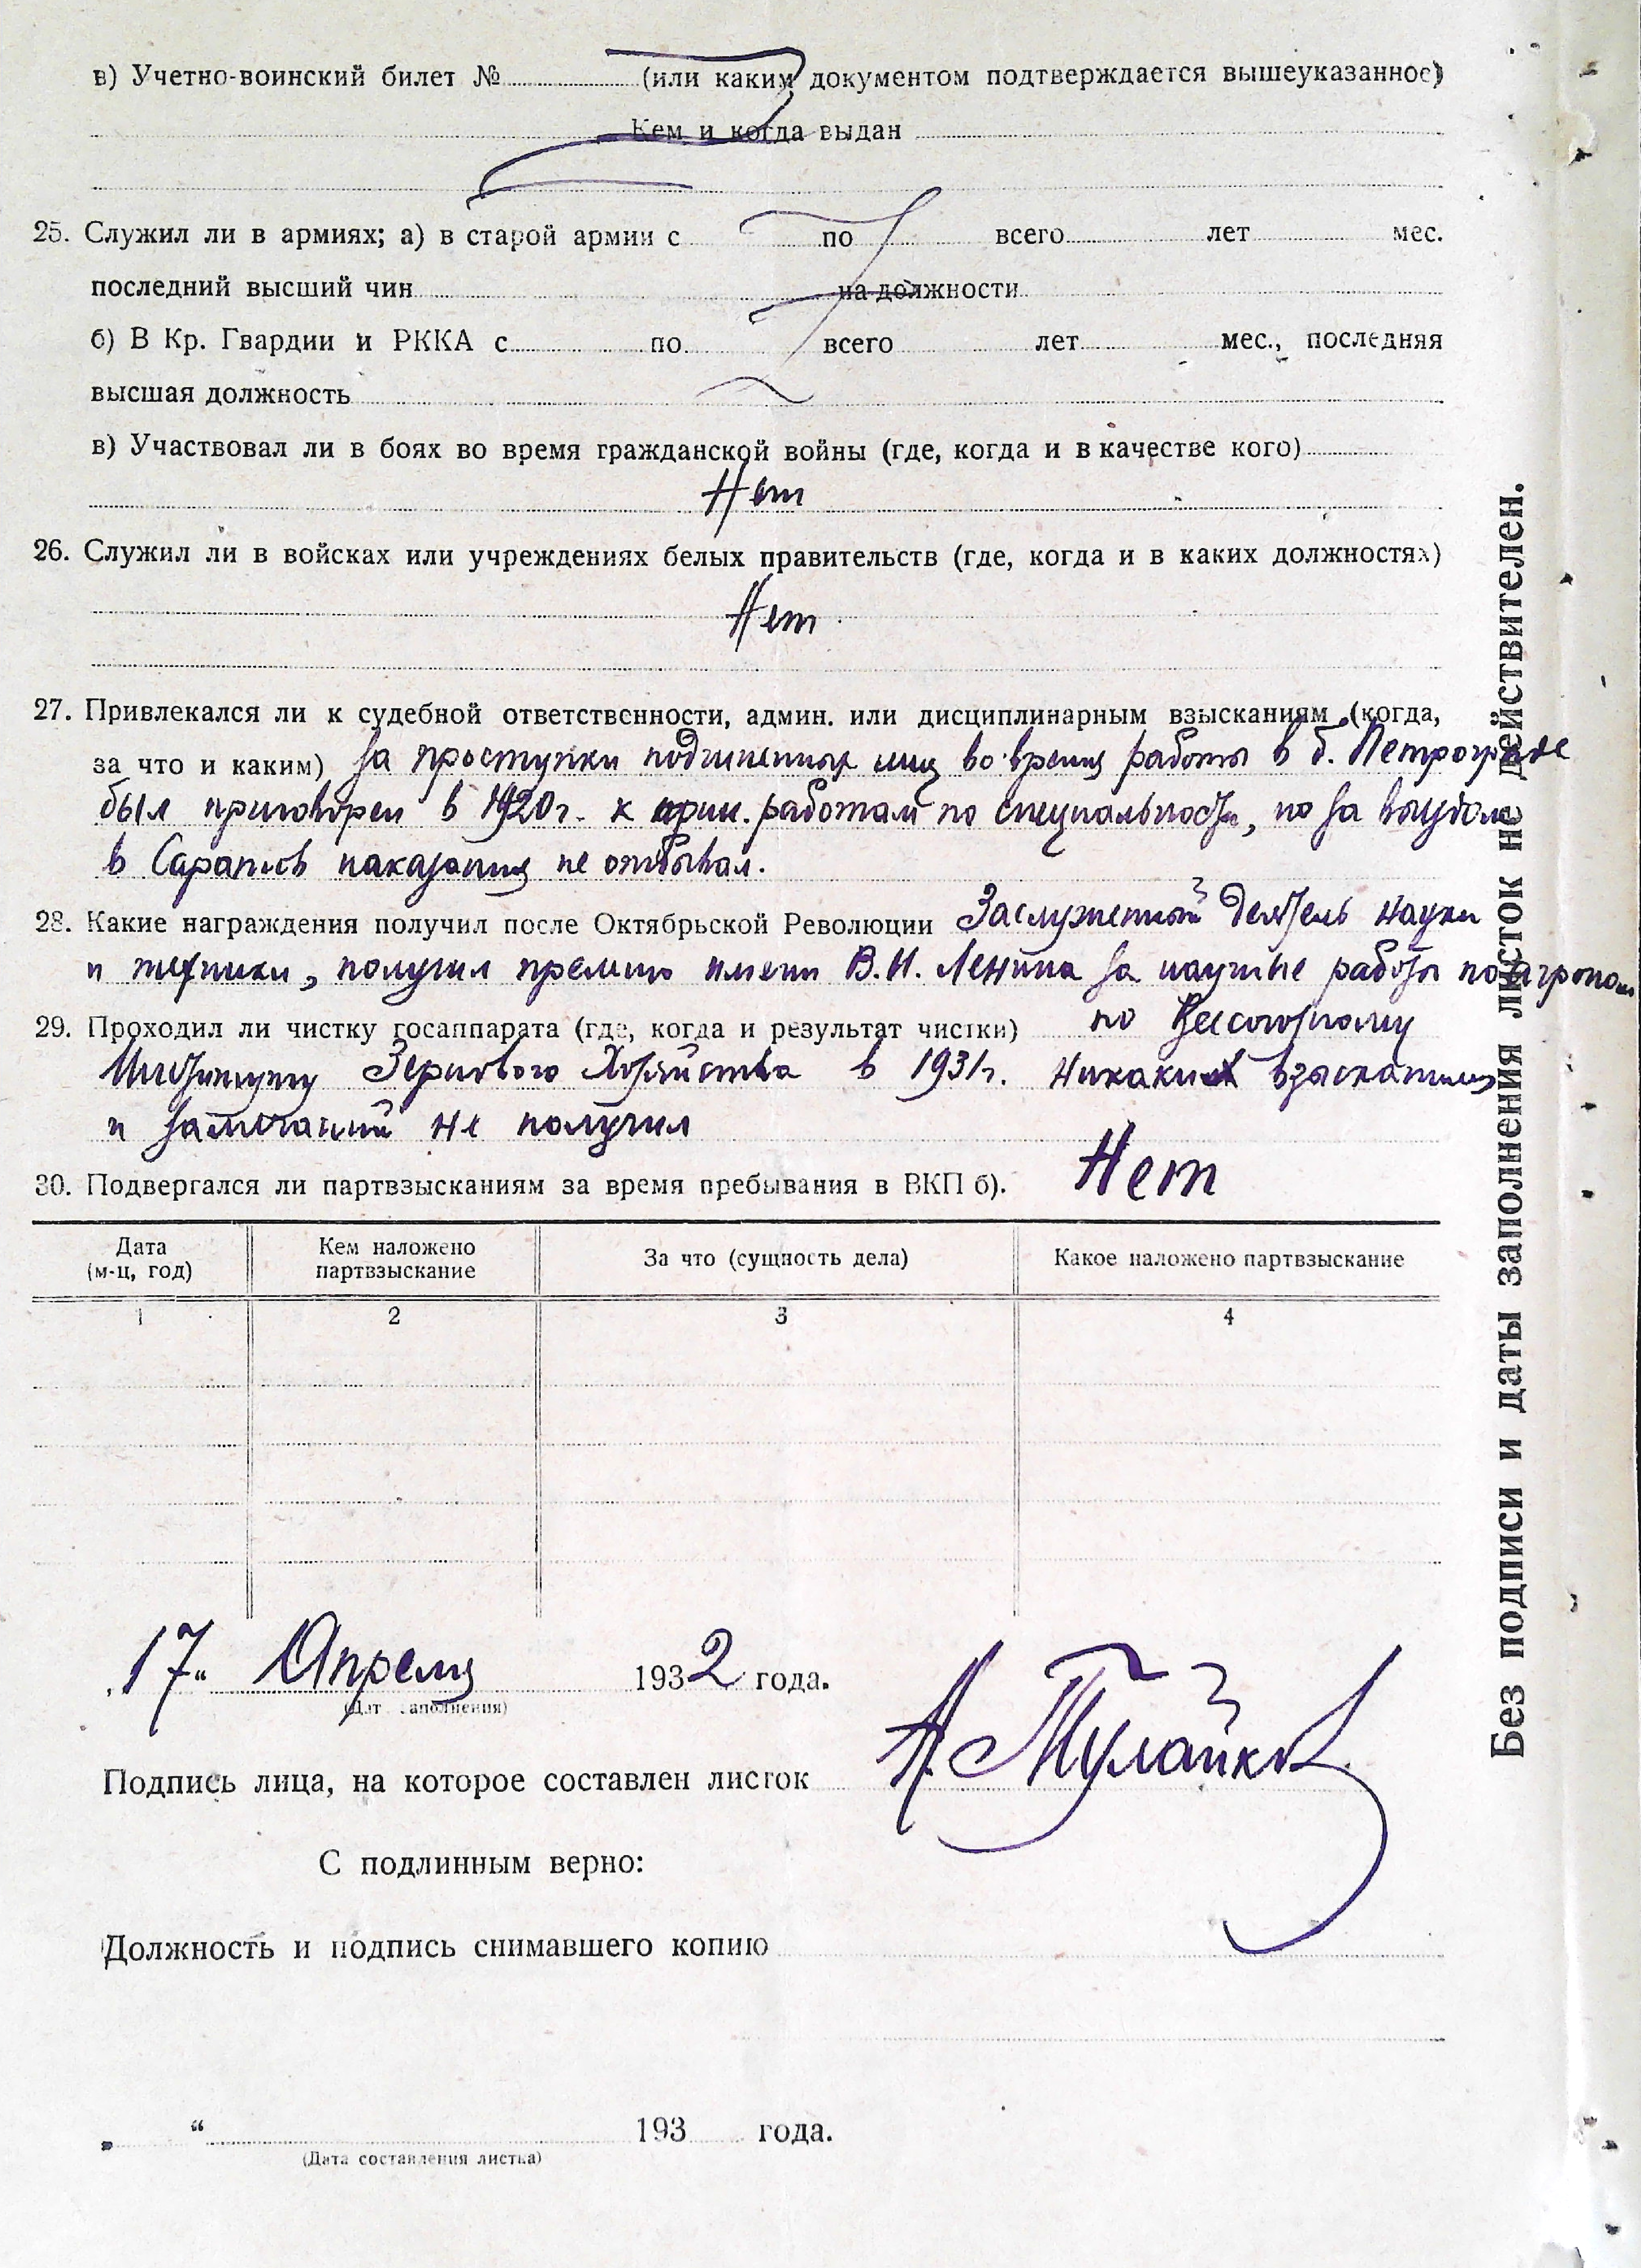 в) Учетно-воинский билет № (или каким документом подтверждается вышеуказанное)
Кем и когда выдан
25. Служил ли в армиях; а) в старой армии с по всего лет мес.
последний высший чин на должности
б) В Кр. Гвардии и РККА с по всего лет мес., последняя
высшая должность
в) Участвовал ли в боях во время гражданской войны (где, когда и в качестве кого)
Нет
26. Служил ли в войсках или учреждениях белых правительств (где, когда и в каких должностях)
Нет
27. Привлекался ли к судебной ответственности, админ. или дисциплинарным взысканиям (когда,
за что и каким) За проступки подчиненных лиц во время работы в б. Петрограде
был приговорен в 1920 г. к прин. работам по специальности, но за выездом
в Саратов наказания не отбывал.
28. Какие награждения получил после Октябрьской Революции Заслуженный деятель науки
и техники, получил премию имени В. И. Ленина за научные работы по агроном
29. Проходил ли чистку госаппарата (где, когда и результат чистки) по Всесоюзному
Институту Зернового Хозяйства в 1931 г. никаких взысканий
и замечаний не получил
30. Подвергался ли партвзысканиям за время пребывания в ВКП б). Нет
Дата (м-ц, год) Кем наложено партвзыскание За что (сущность дела) Какое наложено партвзыскание
1 2 3 4
„17“ Апреля 1932 года.
(Дат заполнения)
Подпись лица, на которое составлен листок Н. Тулайков
С подлинным верно:
Должность и подпись снимавшего копию
„ “ 193 года.
(Дата составления листка)
Без подписи и даты заполнения листок не действителен.